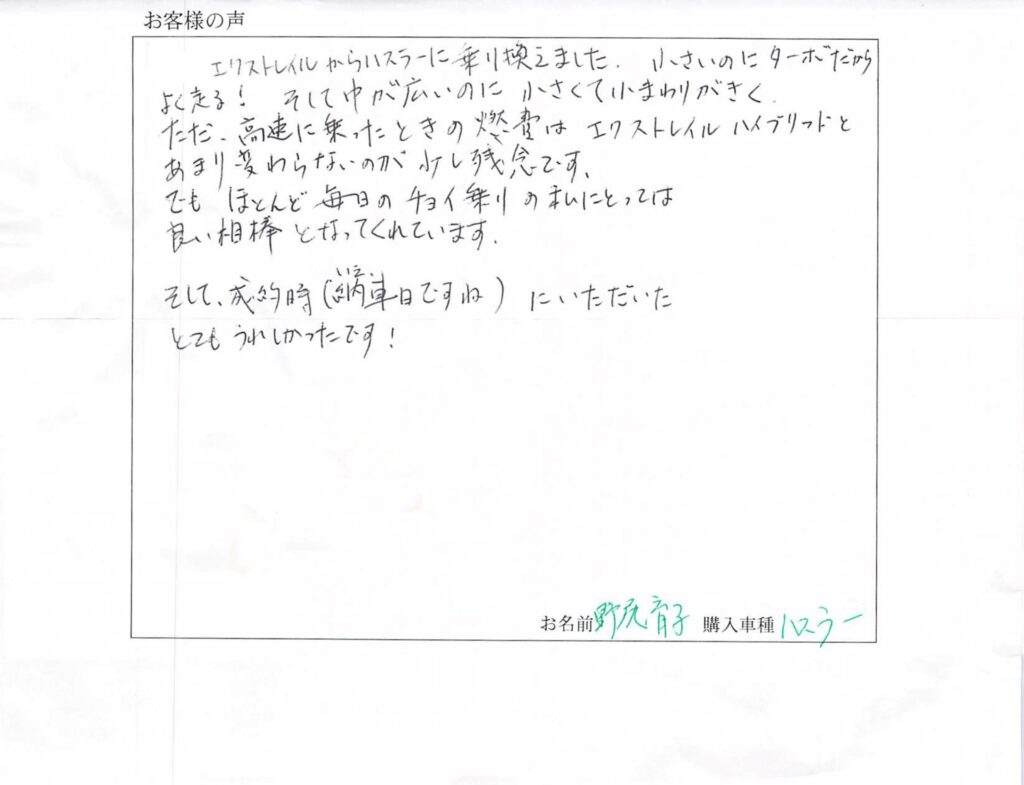 お客様の声
エクストレイルからハスラーに乗り換えました. 小さいのにターボだから
よく走る! そして中が広いのに 小さくて小まわりがきく.
ただ、高速に乗ったときの燃費は エクストレイル ハイブリッドと
あまり変わらないのが 少し残念です.
でも ほとんど 毎日の チョイ乗り の私にとっては
良い相棒 となってくれています.
そして、成約時(納車日ですね) にいただいた
とても うれしかったです!
お名前 野尻育子 購入車種 ハスラー